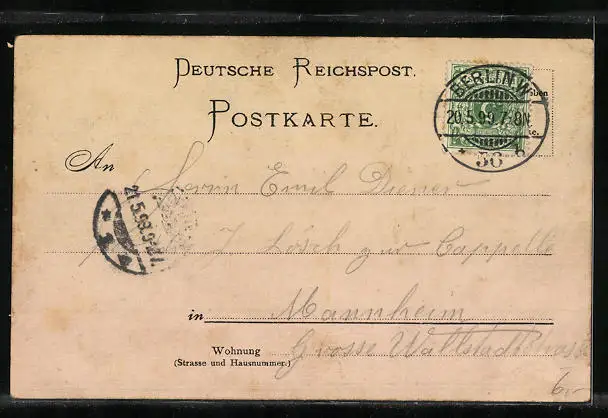 DEUTSCHE REICHSPOST.
POSTKARTE.
BERLIN W
20.5.99.7-8N
56
An
Herrn Emil Diener
J Lösch zur Cappelle
21.5.99.9
in Mannheim
Wohnung
(Strasse und Hausnummer.)
Grosse Wallstadtstrasse
6,-